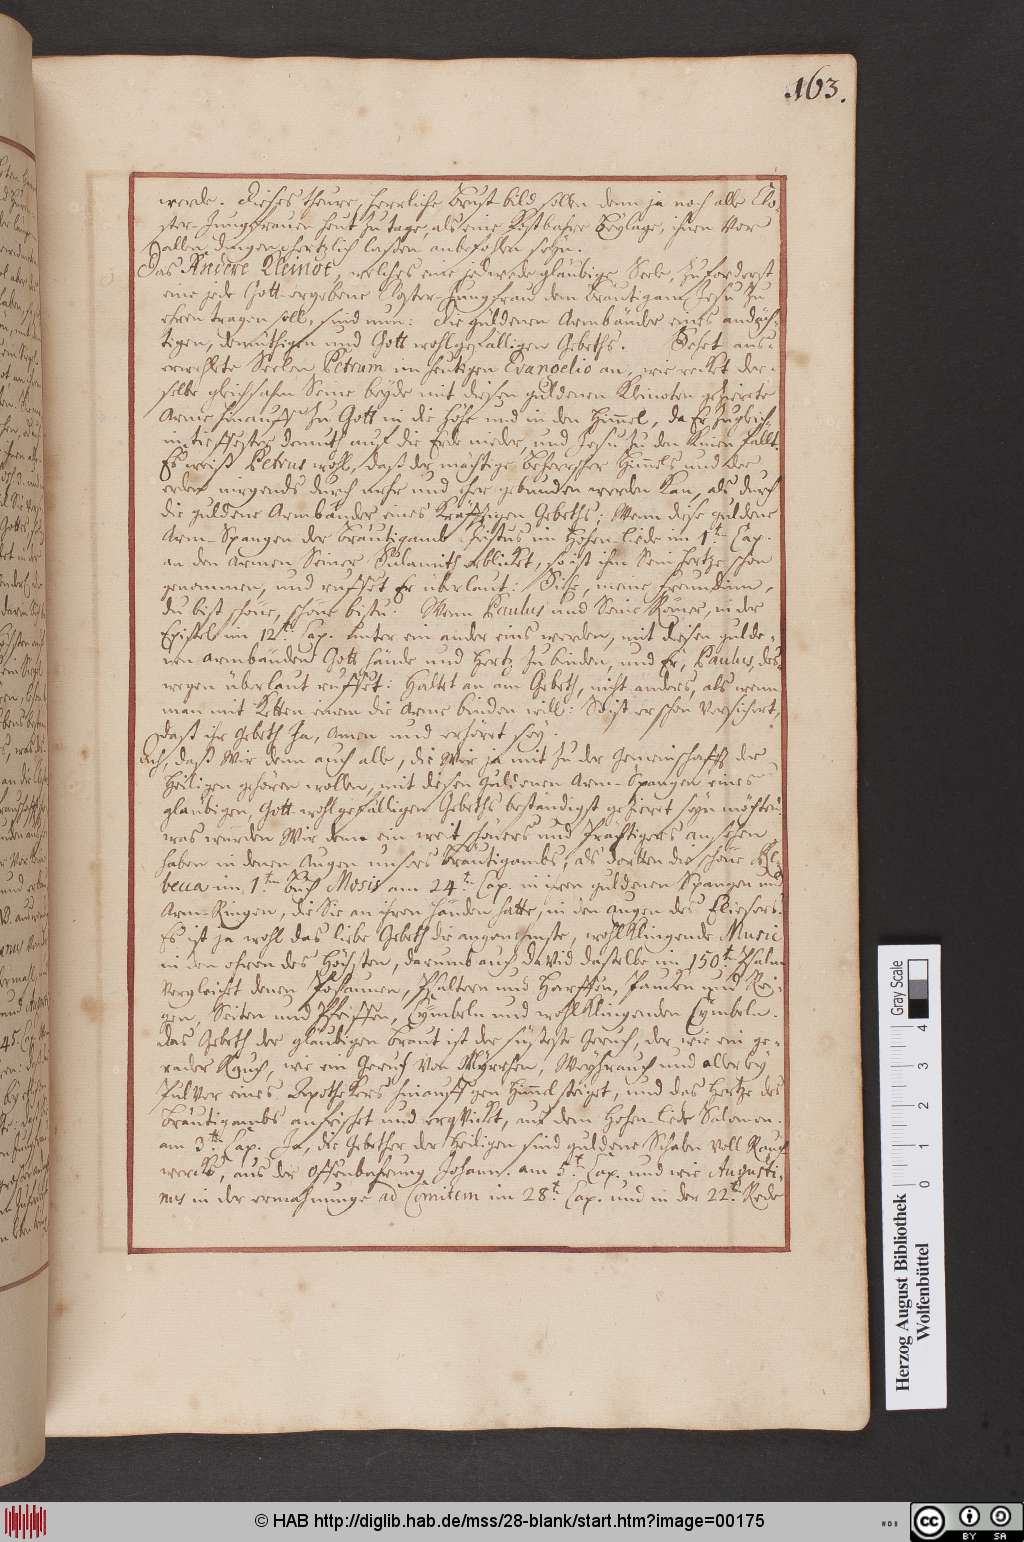 163.
werde. Dieses theure, herrliche Brust bild sollen denn ja noch alle Clo-
ster-Jungfrauen heut zu tage, als eine Kostbahre Beylage, ihnen vor
allen dingen hertzlich laßen anbefohlen seyn.
Das Andere Kleinot, welches eine jedwede gläubige Seele, zuforderst
eine jede Gott-ergebene Closter-Jungfrau dem Bräutigam Jesu zu
ehren tragen soll, sind nun: Die guldenen Armbänder eines andäch-
tigen, demüthigen und Gott wohlgefälligen Gebeths. Sehet auß-
erwehlte Seelen Petrum im heutigen Evangelio an, wie recket der-
selbe gleichsahm Seine beyde mit diesen guldenen Kleinoten gezierete
Arme hinauff zu Gott in die Höhe und in den Him̄el, da Er zugleich
in tieffester demuth auf die Erde nieder, und Jesu zu den Knien fällt.
Es weiß Petrus wohl, daß der mächtige Beherrscher Him̄els und der
erden nirgends durch mehr und eher gebunden werden kan, als durch
die guldene Armbänder eines kräfftigen Gebeths; Wenn diese guldene
Arm-Spangen der Bräutigamb Christus im Hohen Liede im 1t. Cap.
an den Armen Seiner Sulamith erblicket, so ist ihm Sein Hertze schon
genommen, und ruffet Er überlaut: Siehe, meine Freundinn,
du bist schöne, schöne bistu. Wenn Paulus und Seine Römer, in der
Epistel im 12th. Cap. unter ein ander eins werden, mit diesen gulde-
nen Armbänden Gott Hände und Hertz zu binden, und Er, Paulus, des-
wegen überlaut ruffet: Haltet an am Gebeth, nicht anders, als wenn
man mit Ketten einem die Arme binden will: So ist er schon versichert,
daß ihr Gebeth Ja, Amen und erhöret sey.
Ach, daß Wir denn auch alle, die Wir ja mit zu der Gemeinschafft der
Heiligen gehören wollen, mit diesen Guldenen Arm-Spangen eines
gläubigen, Gott wohlgefälligen Gebeths beständigst gezieret seyn möchten!
was wurden Wir denn ein weit schöners und prächtigers ansehen
haben in denen Augen unsers Bräutigambs, als dorten die schöne Re-
becca im 1t. Buch Mosis am 24t. Cap. in ihren guldenen Spangen und
Arm-Ringen, die Sie an ihren Händen hatte, in den Augen des Eliesers.
Es ist ja wohl das liebe Gebeth die angenehmste, wohlklingende Music
in den ohren des Höchsten, darumb auch David dasselbe im 150t. Psalm
vergleichet denen Posaunen, Psaltern und Harffen, Paucken und Rei-
gen, Seiten und Pfeiffen, Cymbeln und wohlklingenden Cymbeln.
Das Gebeth der gläubigen Braut ist der süßeste Geruch, der wie ein ge-
rader Rauch, wie ein Geruch von Myrrhen, Weyhrauch und allerley
Pulver eines Apothekers hinauff gen Him̄el steiget, und das Hertze des
Bräutigambs anfrischet und erqvicket, aus dem Hohen-Liede Salomon.
am 3th. Cap. Ja, die Gebether der Heiligen sind guldene Schalen voll Rauch
wercks, aus der Offenbahrung Johann. am 5t. Cap. und wie Augusti-
nus in der ermahnunge ad Comitem im 28t. Cap. und in der 22t. Rede
Gray Scale
0 1 2 3 4
Herzog August Bibliothek
Wolfenbüttel
© HAB http://diglib.hab.de/mss/28-blank/start.htm?image=00175
WDB
cc BY SA